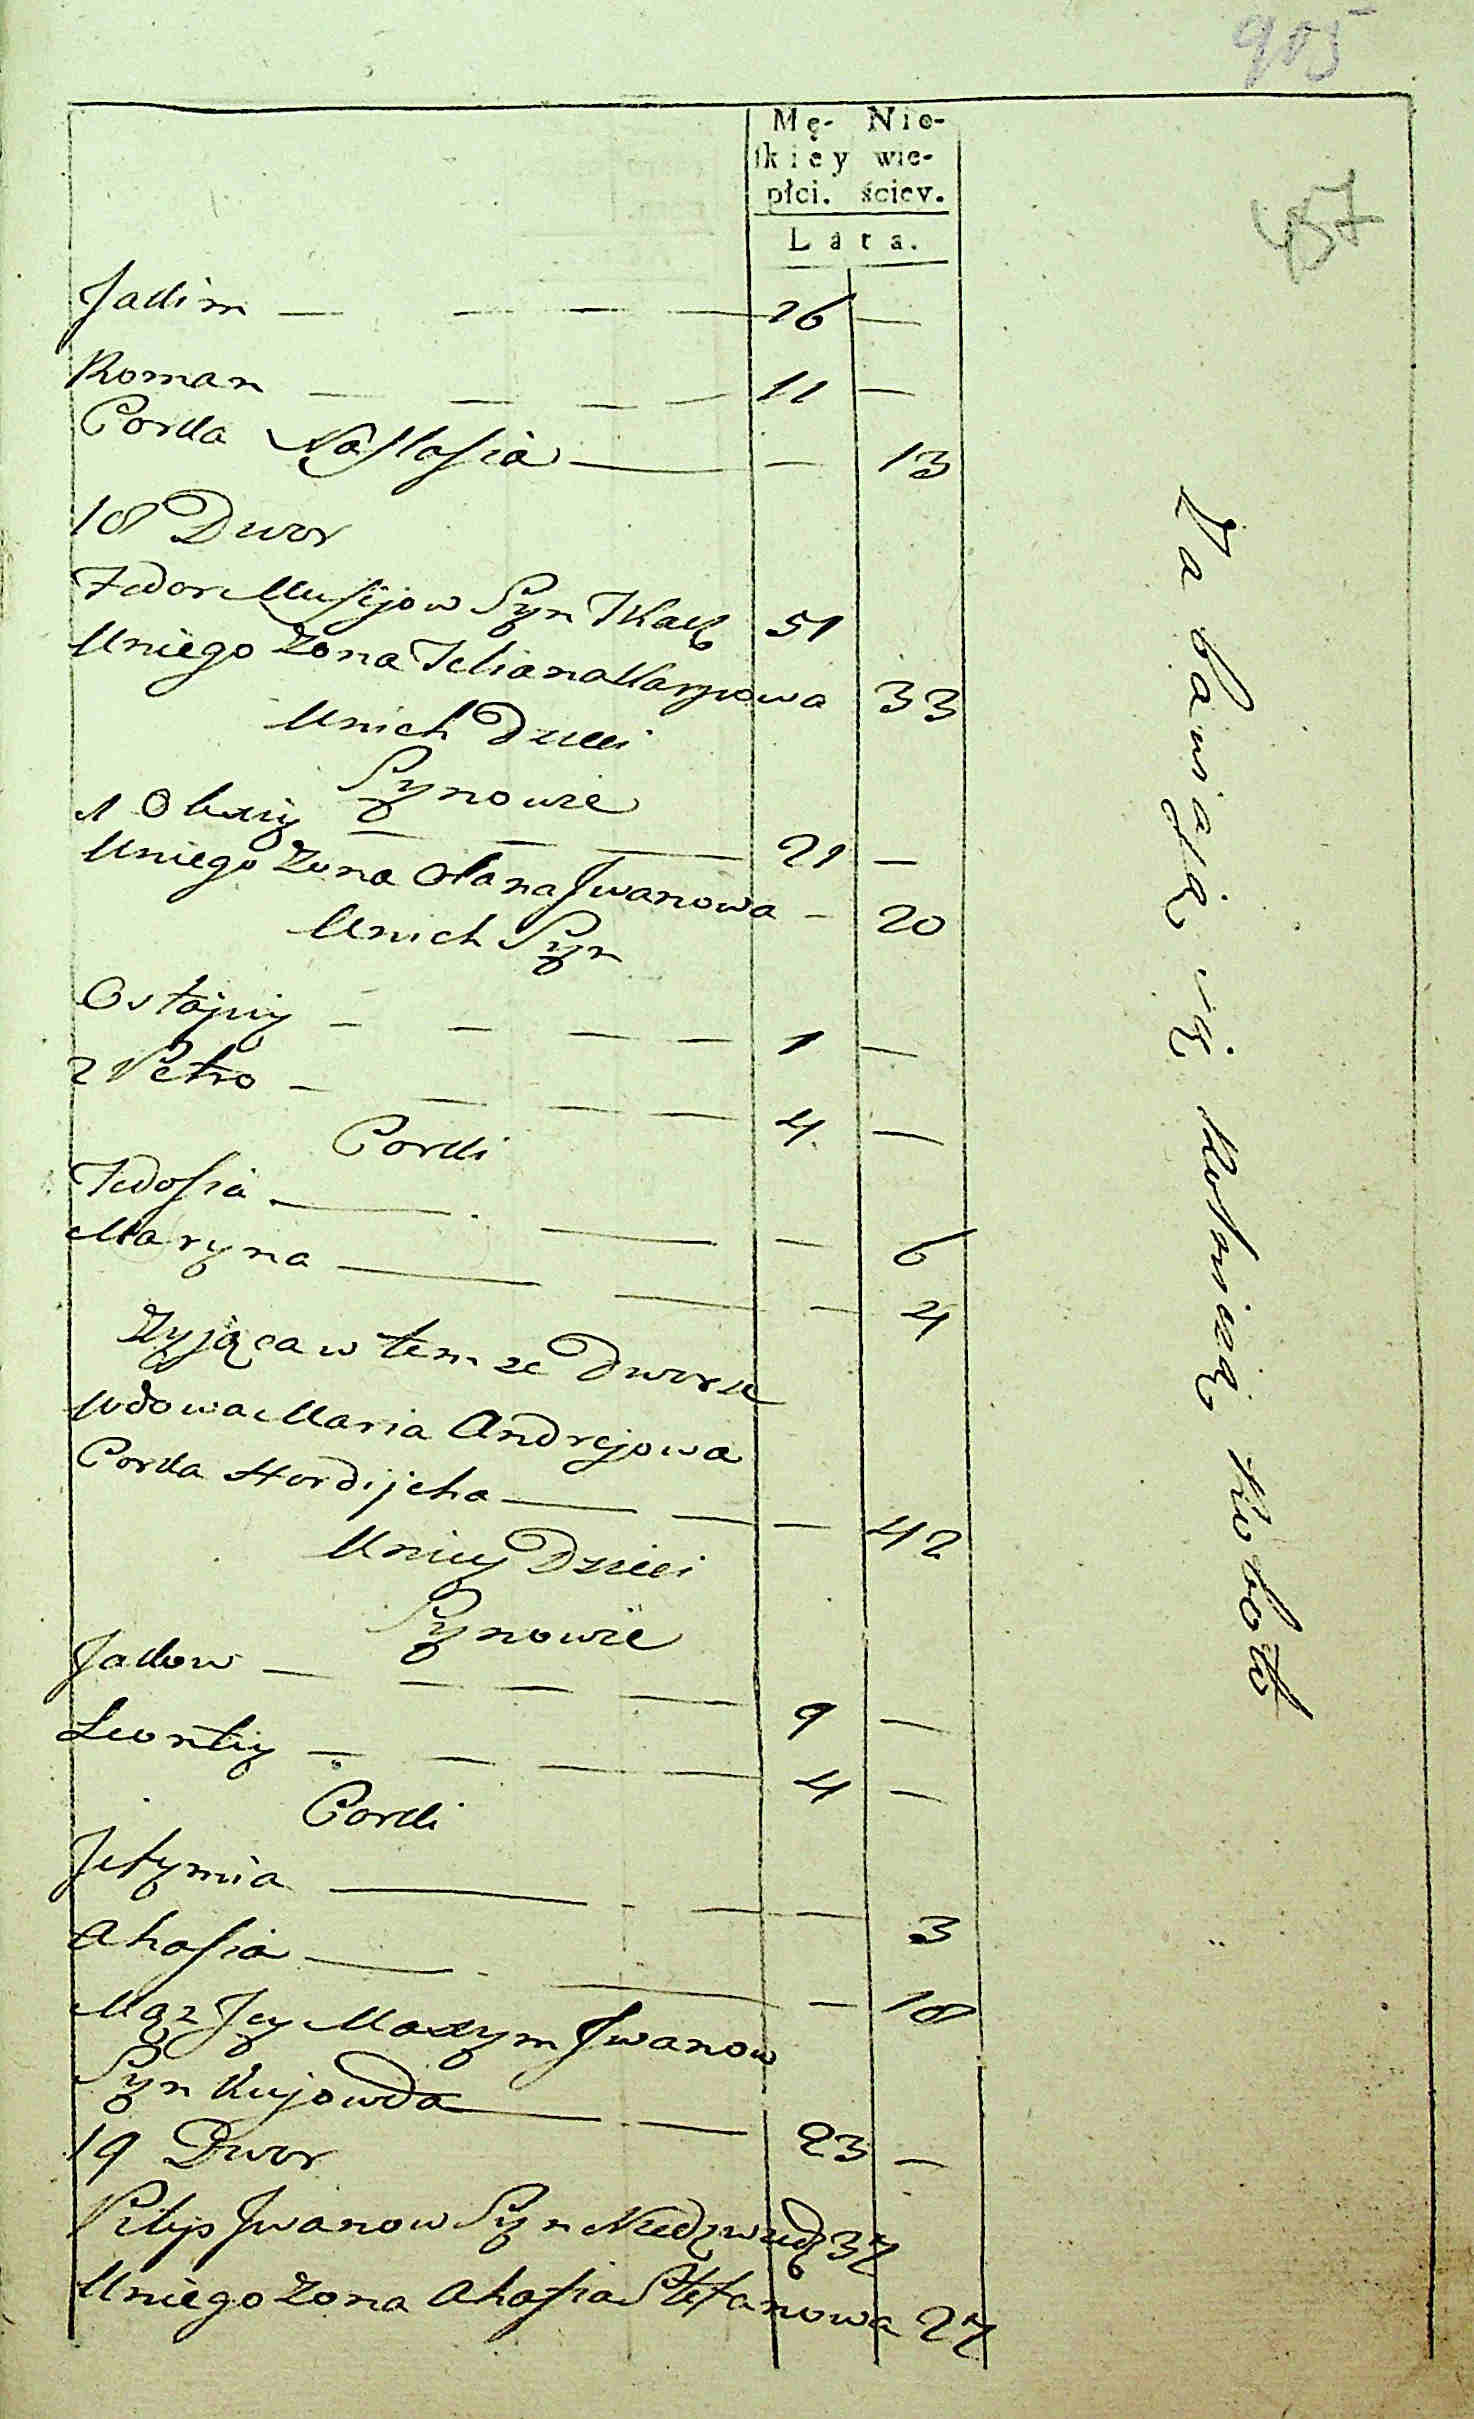 905
Mę- Nie-
skiey wie-
płci. ściey.
Lata.
457
Jadim — — — — 26 —
Roman — — — — 11 —
Corka Nastasia — — 13
18 Dwor
Fedor Musijow Syn Tkacz 51
Uniego Zona Teliana Karpowa 33
Unich Dzieci
Synowie
1 Olexiy — — — 21 —
Uniego Zona Olana Jwanowa — 20
Unich Syn
Ostapiy — — — — 1 —
2 Petro — — — — 4 —
Corki
Fedosia — — — 6
Maryna — — — 4
Zyjąca w tem ze Dworze
Wdowa Maria Andrejowa
Corka Hordijcha — — — 42
Uniey Dzieci
Synowie
Jakow — — — — 9 —
Leontiy — — — — 4 —
Corki
Jefymia — — — 3
Ahafia — — — 18
Mąż Jey Maxym Jwanow
Syn Kujowda — — 23 —
19 Dwor
Pilip Jwanow Syn Niedzwiedz 37
Uniego Zona Ahafia Stefanowa 27
Zabawiaią się Rolniczą Robotą